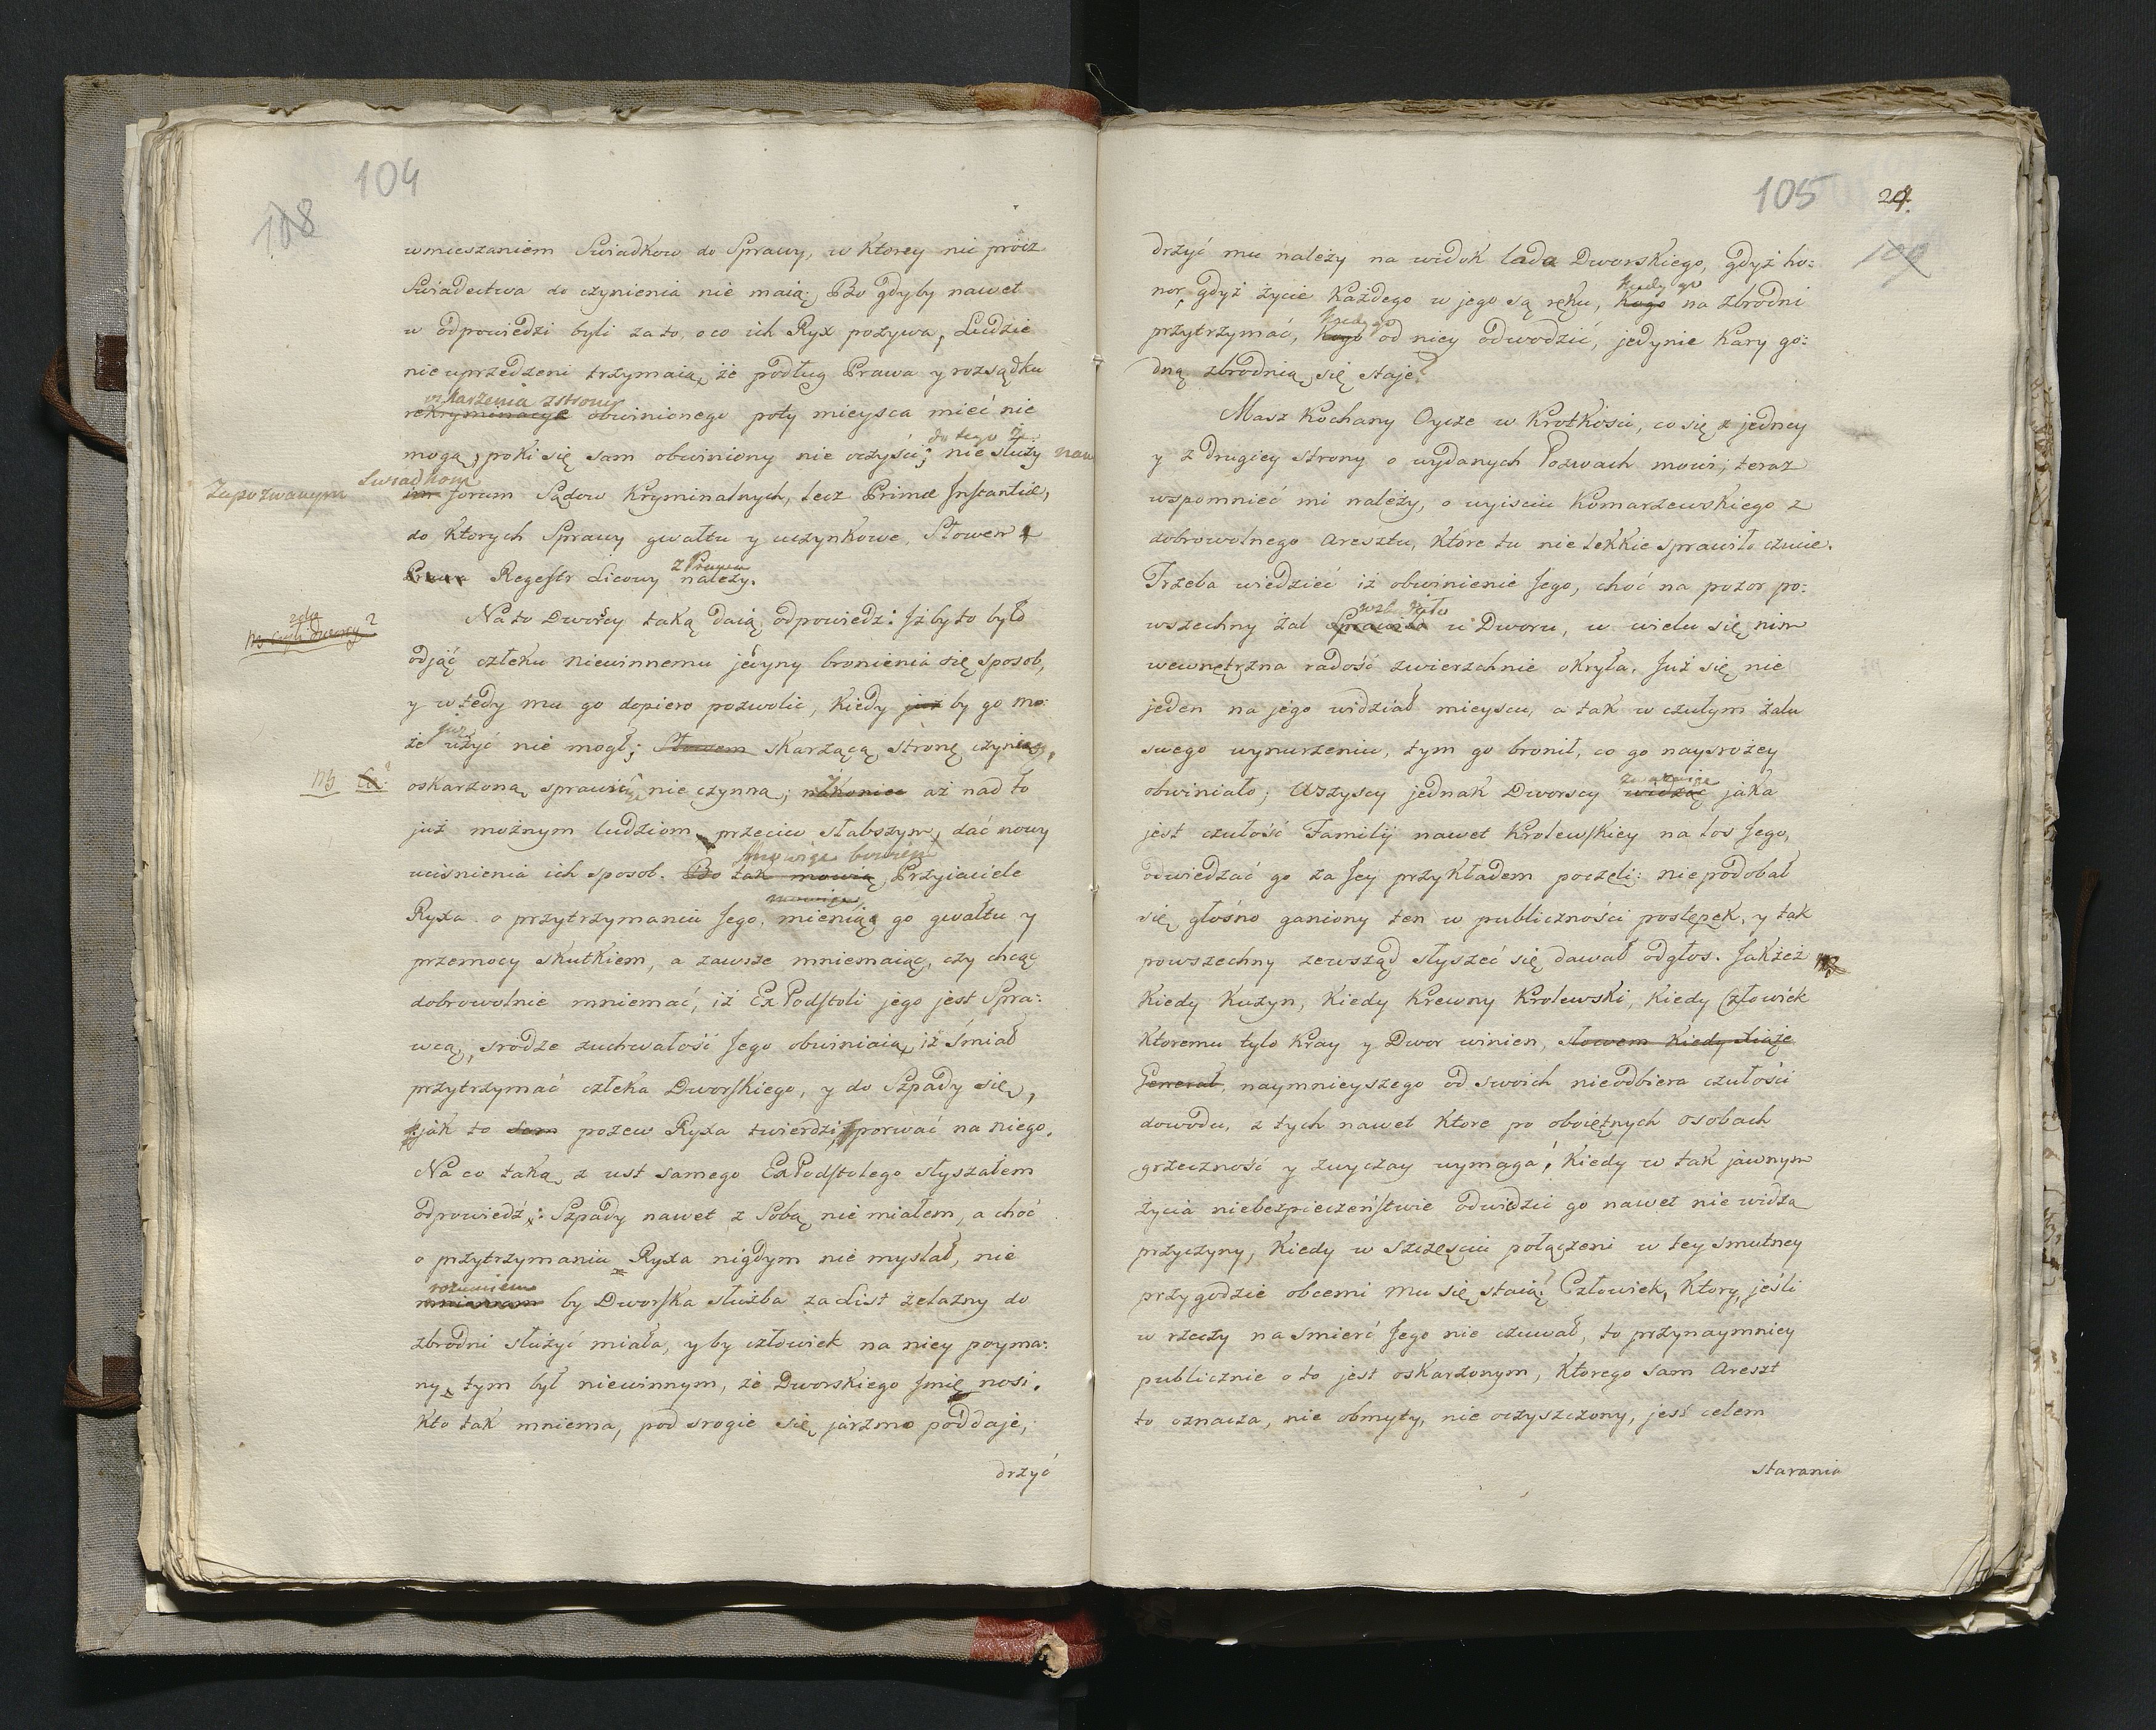 104
108
wmieszaniem Swiadkow do Sprawy, w Ktorey nic procz
Swiadectwa do czynienia nie maią; Bo gdyby nawet
w odpowiedzi byli za to, o co ich Ryx pozywa, Ludzie
nie uprzedzeni trzymaią, że podług Prawa y rozsądku
oskarzenia z strony
rekryminacye obwinionego poty mieysca mieć nie
do tego że
mogą, poki się sam obwiniony nie oczyści; nie służy
Zapozwanym Swiadkom
im forum Sądow Kryminalnych, lecz Primæ Instantiæ,
do Ktorych Sprawy gwałtu y uczynkowe, Słowem
z Prawa
Prawa Regestr Licowy należy.
Na to Dworscy taką daią odpowiedz: Iż by to było
odjąć człeku niewinnemu jedyny bronienia się sposob,
y wtedy mu go dopiero pozwolić, Kiedy już by go mo:
już
że użyć nie mogł; Słowem skarżącą stronę czynną,
NB
oskarżoną sprawić nie czynną; nakoniec aż nad to
już możnym ludziom przeciw słabszym, dać nowy
Mowiąc bowiem
uciśnienia ich sposob. Bo tak mowią Przyiaciele
mowiąc
Ryxa o przytrzymaniu Jego, mienią go gwałtu y
przemocy skutkiem, a zawsze mniemaiąc, czy chcąc
dobrowolnie mniemać, iż ExPodstoli jego jest Spra:
wcą, srodze zuchwałość Jego obwiniaią, iż śmiał
przytrzymać człeka Dworskiego, y do Szpady się,
jak to sam pozew Ryxa twierdzi, porwać na niego.
Na co taką z ust samego ExPodstolego słyszałem
odpowiedź: Szpady nawet z Sobą nie miałem, a choć
o przytrzymaniu Ryxa nigdym nie myslał, nie
rozumiem
mniemam by Dworska służba za list żelazny do
zbrodni służyć miała, y by człowiek na niey poyma:
ny, tym był niewinnym, że Dworskiego Imię nosi.
Kto tak mniema, pod srogie się jarzmo poddaje,
drżyć
105
24.
109
drżyć mu należy na widok lada Dworskiego, gdyż ho:
Kiedy go
nor, gdyż życie Każdego w jego są ręku, Kogo na zbrodni
Kiedy go
przytrzymać, Kogo od niey odwodzić, jedynie Kary go:
dną zbrodnią się staje?
Masz Kochany Oycze w Krotkości, co się z jedney
y z drugiey strony o wydanych Pozwach mowi; teraz
wspomnieć mi należy, o wyisciu Komarzewskiego z
dobrowolnego Aresztu, Ktore tu nie lekkie sprawiło czucie.
Trzeba wiedzieć iż obwinienie Jego, choć na pozor po:
wzbudziło
wszechny żal Sprawiła u Dworu, w wielu się nim
wewnętrzna radość zwierzchnie okryła. Już się nie
jeden na jego widział mieyscu, a tak w czułym żalu
swego wynurzeniu, tym go bronił, co go naysrożey
zważaiąc
obwiniało; Wszyscy jednak Dworscy widząc jaka
jest czułość Familij nawet Krolewskiey na los Jego,
odwiedzać go za Jey przykładem poczęli; nie podobał
się głośno ganiony ten w publiczności postępek, y tak
powszechny zewsząd słyszeć się dawał odgłos. Jakżeż
Kiedy Kuzyn, Kiedy Krewny Krolewski, Kiedy Człowiek
Ktoremu tylo Kray y Dwor winien, słowem Kiedy Xiąże
Generał, naymnieyszego od swoich nieodbiera czułości
dowodu, z tych nawet Ktore po oboiętnych osobach
grzeczność y zwyczay wymaga; Kiedy w tak jawnym
życia niebezpieczeństwie odwidzić go nawet nie widzą
przyczyny, Kiedy w szczęsciu połączeni w tey smutney
przygodzie obcemi mu się staią? Człowiek, Ktory, jeśli
w rzeczy na smierć Jego nie czuwał, to przynaymniey
publicznie o to jest oskarżonym, Ktorego sam Areszt
to oznacza, nie obmyty, nie oczyszczony, jest celem
starania